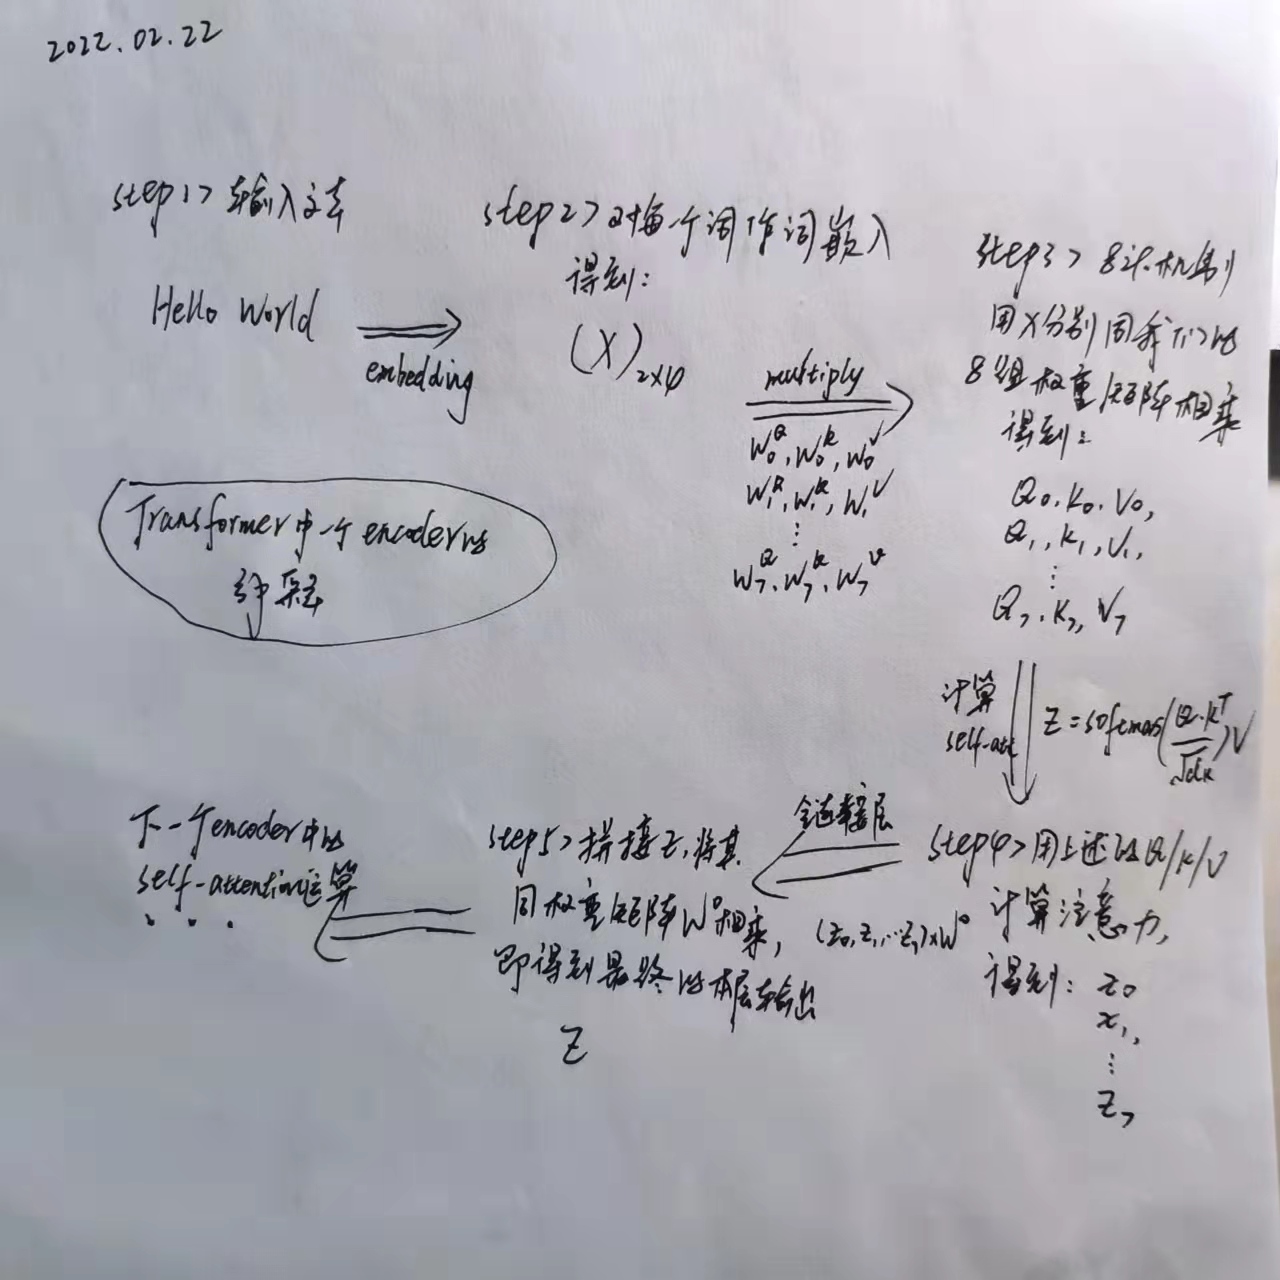 2022.02.22
step1> 输入文本
Hello World
embedding
step2> 对每个词作词嵌入
得到:
(X)₂ₓ₄
multiply
W₀^Q, W₀^K, W₀^V
W₁^Q, W₁^K, W₁^V
⋮
W₇^Q, W₇^K, W₇^V
step3> 8头机制
用X分别同我们的
8组权重矩阵相乘
得到:
Q₀, K₀, V₀,
Q₁, K₁, V₁,
⋮
Q₇, K₇, V₇
Transformer中一个encoder的
计算
self-att
Z = softmax(Q·K^T/√dₖ)V
step4> 用上述的Q/K/V
计算注意力,
得到: Z₀
Z₁,
⋮
Z₇
全连接层
(Z₀, Z₁, …Z₇)×W⁰
step5> 拼接Z, 将其
同权重矩阵W⁰相乘,
即得到最终的本层输出
Z
下一个encoder中的
self-attention运算
...